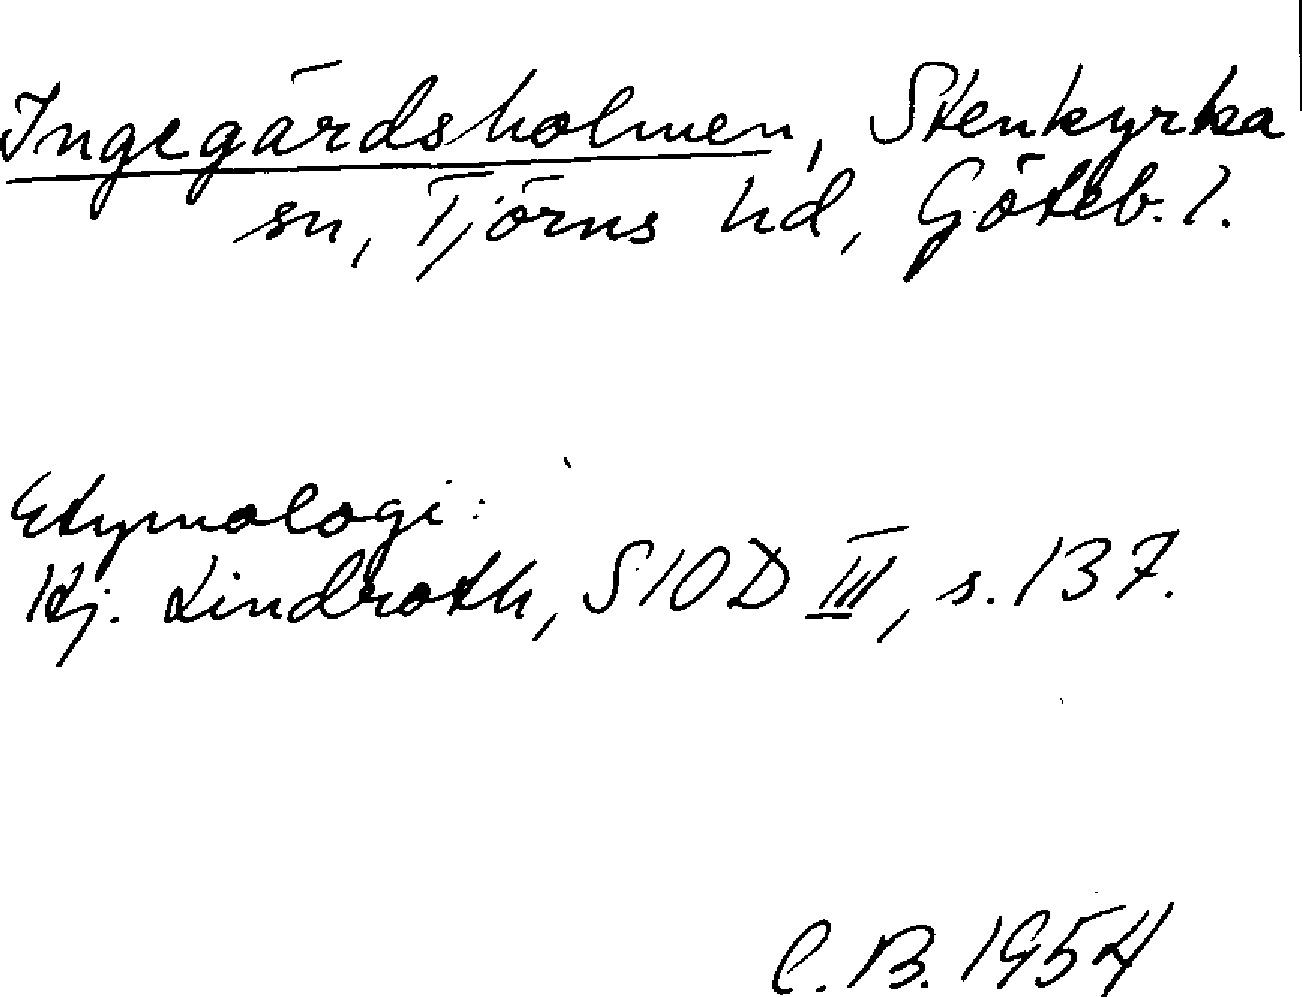 Ingegärdsholmen, Stenkyrka
sn, Tjörns hd, Göteb. l.
Etymologi:
Hj. Lindroth, SIOD III, s. 137.
C. B. 1954